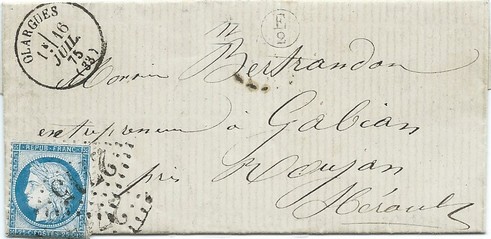 OLARGUES
1E 16
JUIL.
75
(33)
E
2
Monsieur Bertrandon
entrepreneur à Gabian
près Roujan
Hérault
REPUB. FRANC.